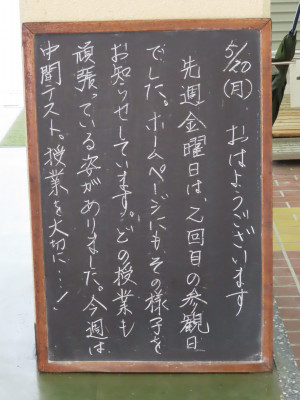 5/20(月) おはようございます
先週金曜日は、2回目の参観日
でした。ホームページにもその様子を
お知らせしています。どの授業も
頑張っている姿がありました。今週は
中間テスト。授業を大切に…!